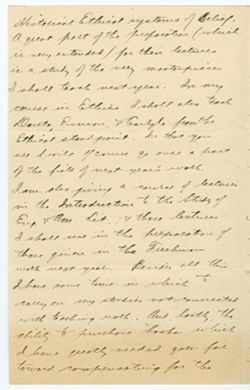 Historical Ethical systems of Belief.
A great part of the preparation (which
is very extended) for these lectures
is a study of the very masterpieces
I shall teach next year. In my
course in Ethics I shall also teach
Dante, Emerson, & Carlyle from the
Ethical standpoint. So that you
see I write of course go over a part
of the field of next year's work.
I am also giving a course of lectures
in the Introduction to the Study of
Eng. & Am. Lit. & these lectures
I shall use in the preparation of
those given in the Freshman
work next year. Besides all this
I have some time in which to
carry on my studies not connected
with teaching work. And lastly the
ability to purchase books which
I have greatly needed goes far
toward compensating for the